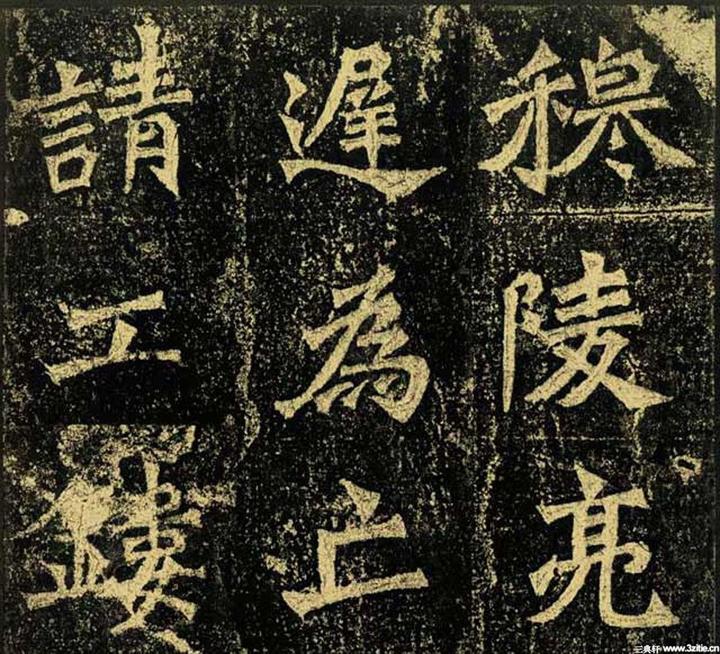 穆陵亮
遲為亡
請工鏤
三典轩·www.3zitie.cn